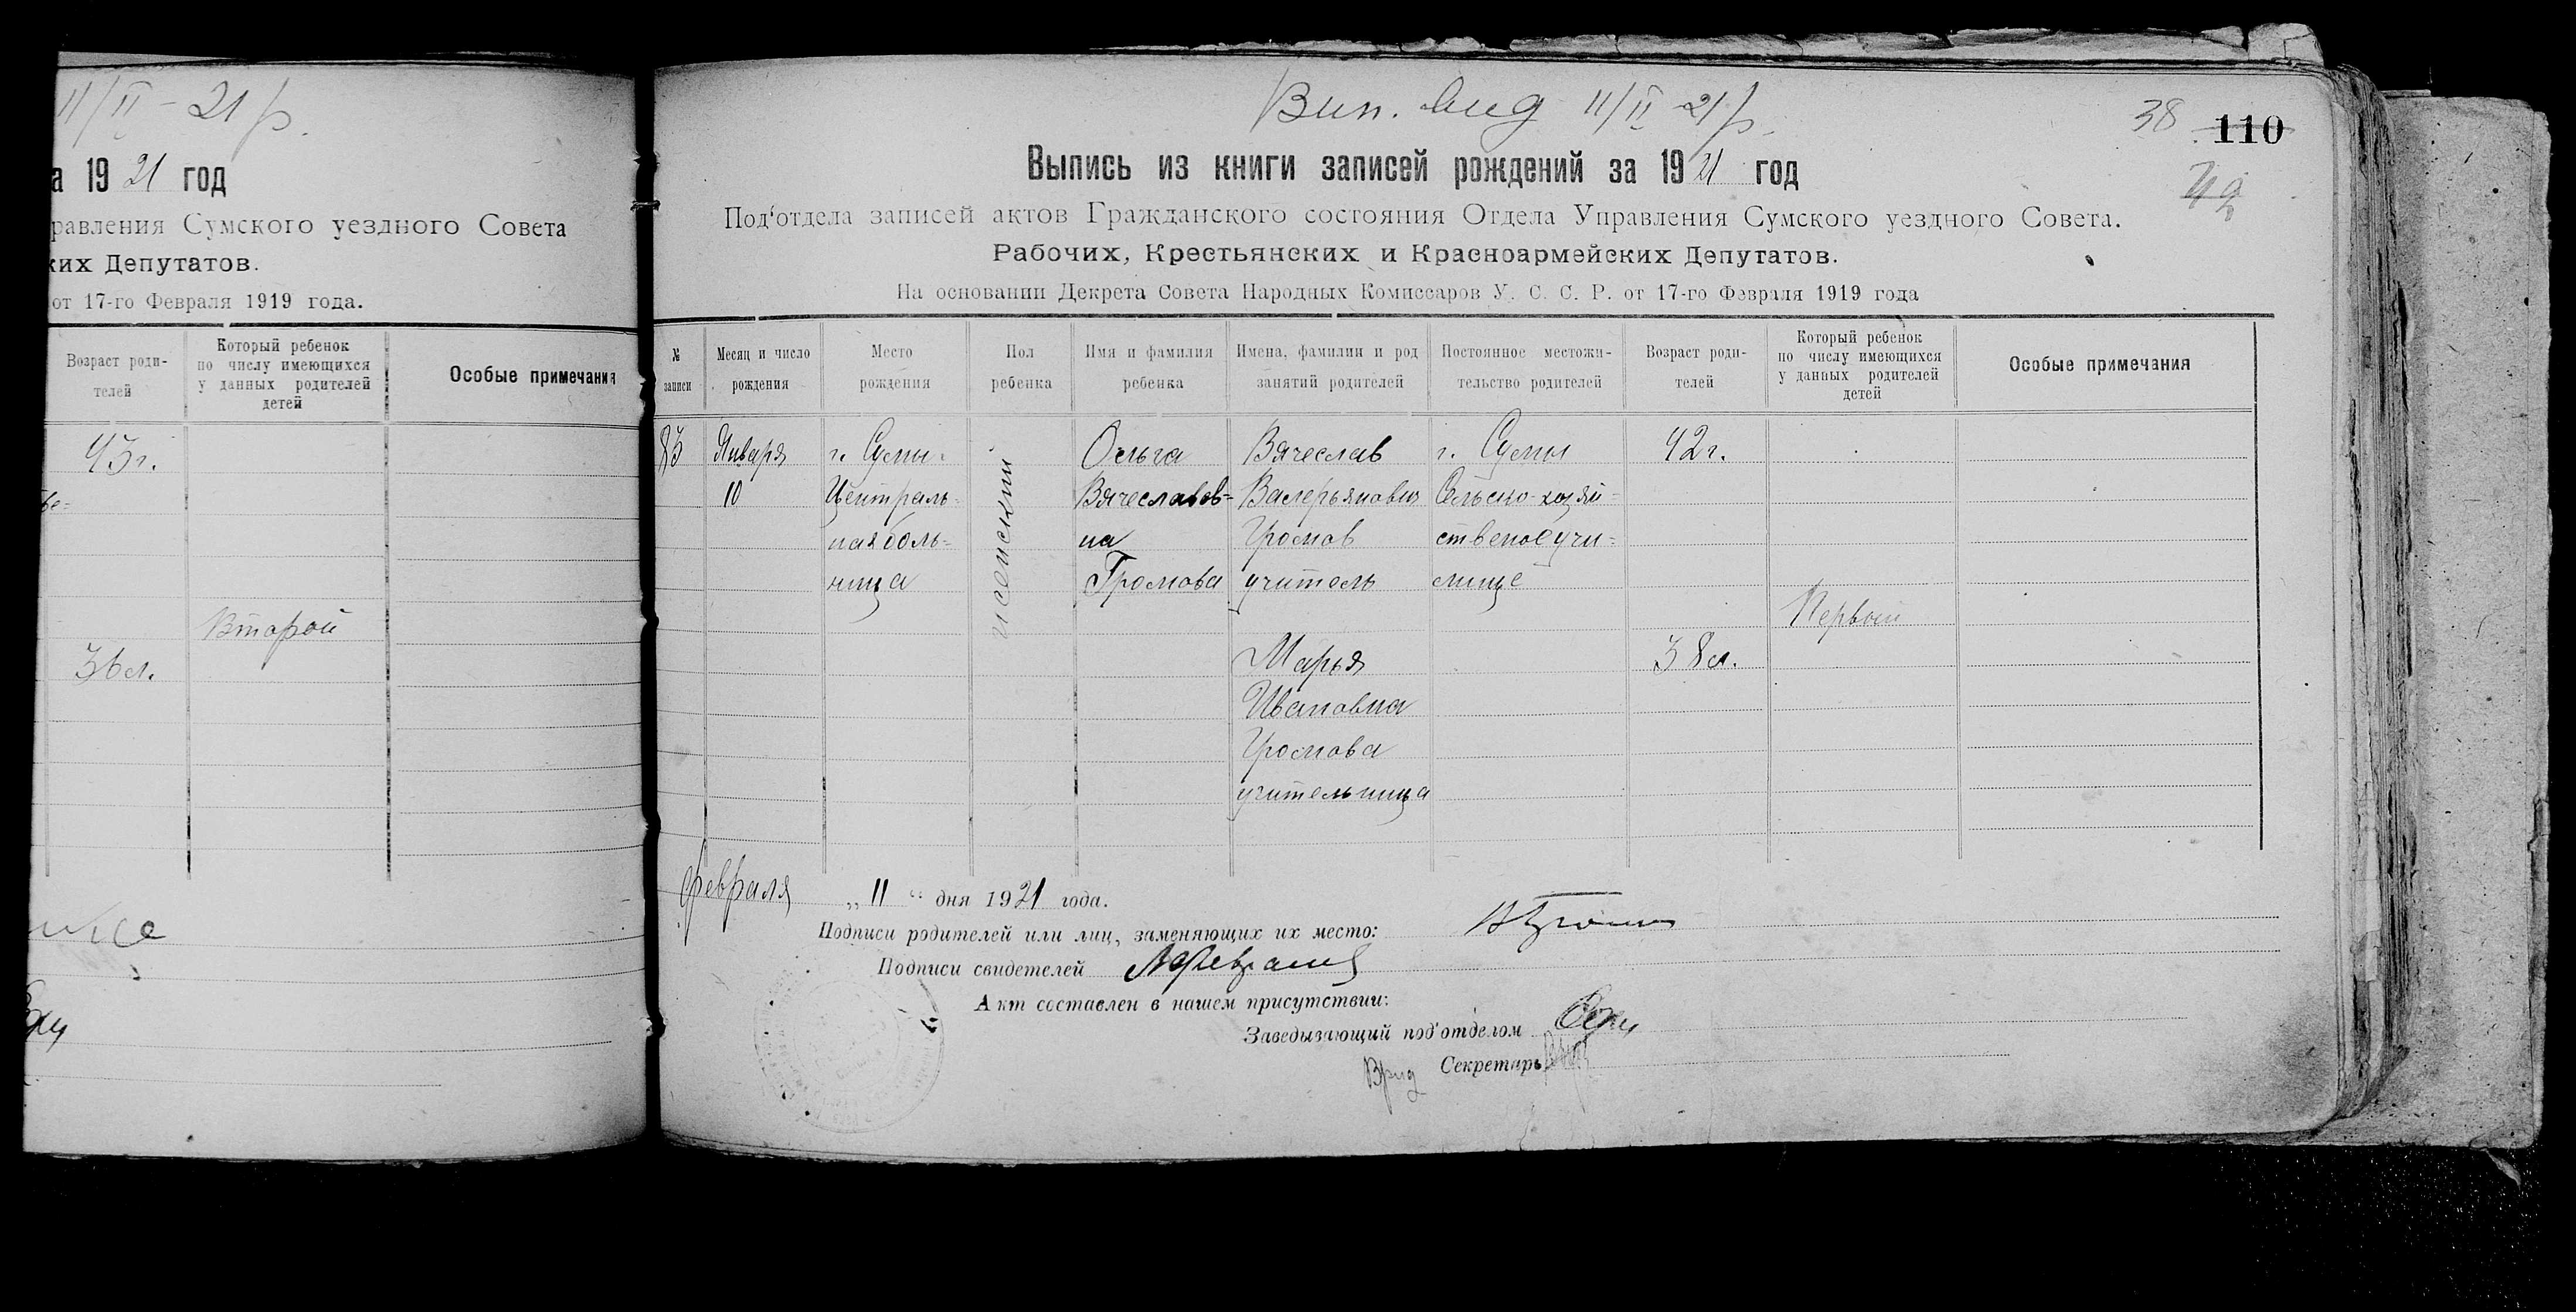 11/II – 21 р.
а 1921 год
равления Сумского уездного Совета
ких Депутатов.
от 17-го Февраля 1919 года.
Возраст роди-
телей
Который ребенок
по числу имеющихся
у данных родителей
детей
Особые примечания
43 г.
Второй
36 л.
Вип. вид 11/II 21 р.
38 110
Выпись из книги записей рождений за 1921 год
Под'отдела записей актов Гражданского состояния Отдела Управления Сумского уездного Совета.
Рабочих, Крестьянских и Красноармейских Депутатов.
На основании Декрета Совета Народных Комиссаров У. С. С. Р. от 17-го Февраля 1919 года
№
записи
Месяц и число
рождения
Место
рождения
Пол
ребенка
Имя и фамилия
ребенка
Имена, фамилии и род
занятий родителей
Постоянное местожи-
тельство родителей
Возраст роди-
телей
Который ребенок
по числу имеющихся
у данных родителей
детей
Особые примечания
83
Января
10
г. Сумы
Централь-
ная боль-
ница
женский
Ольга
Вячеславов-
на
Громова
Вячеслав
Валерьянович
Громов
учитель
Марья
Ивановна
Громова
учительница
г. Сумы
Сельско-хозяй-
ственое учи-
лище
42 г.
38 л.
Первый
февраля „11“ дня 1921 года.
Подписи родителей или лиц, заменяющих их место:
Подписи свидетелей
Акт составлен в нашем присутствии:
Заведывающий под'отделом
Врид Секретарь